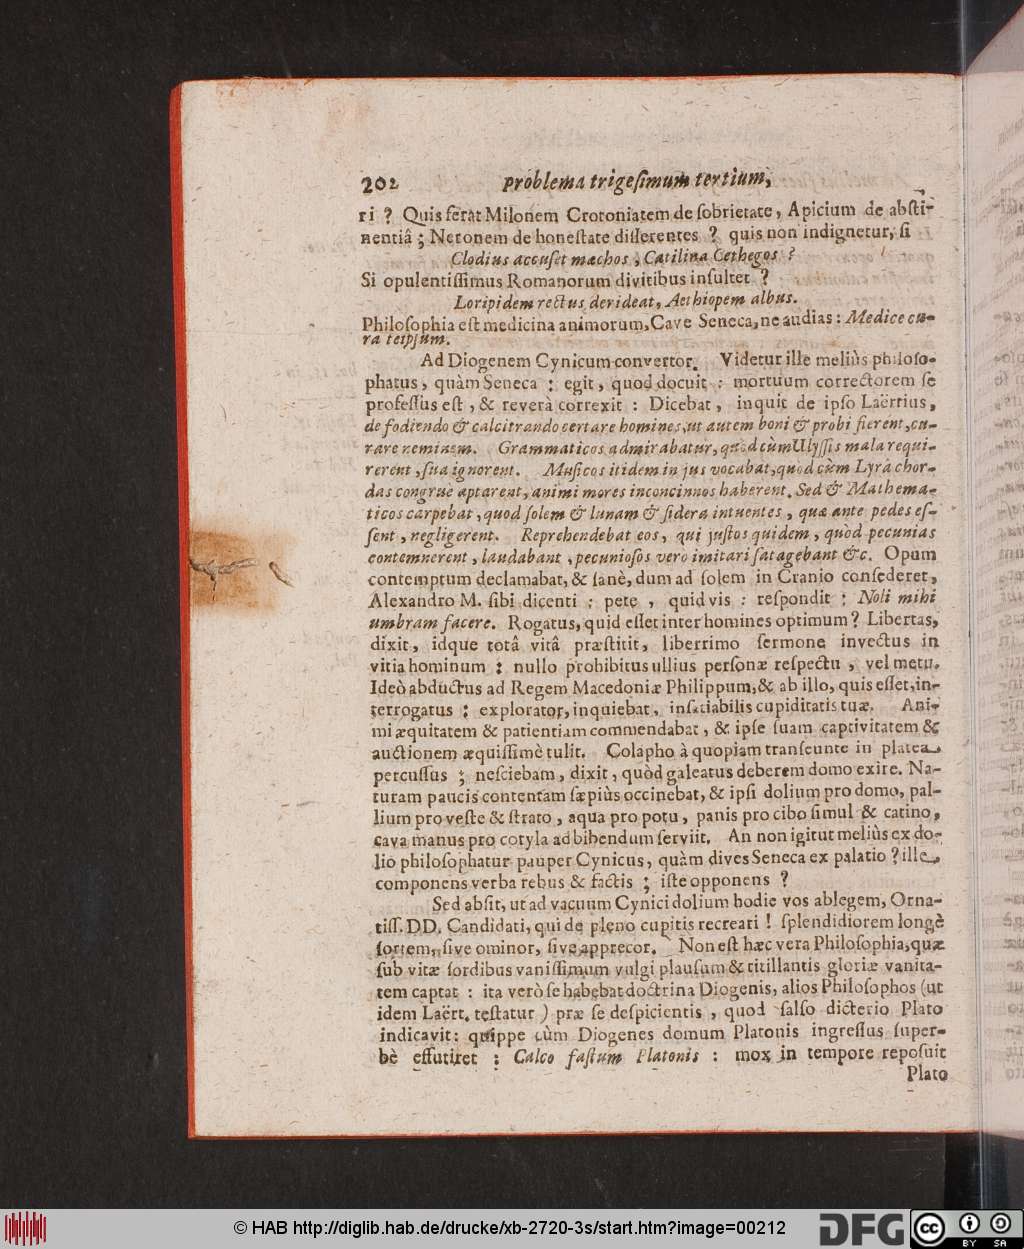 202 Problema trigesimum tertium,
ri ? Quis ferat Milonem Crotoniatem de sobrietate, Apicium de absti-
nentiâ ; Neronem de honestate disserentes ? quis non indignetur, si
Clodius accuset mæchos, Catilina Cethegos ?
Si opulentissimus Romanorum divitibus insultet ?
Loripidem rectus derideat, Aethiopem albus.
Philosophia est medicina animorum, Cave Seneca, ne audias : Medice cu-
ra teipsum.
Ad Diogenem Cynicum convertor. Videtur ille meliùs philoso-
phatus, quàm Seneca : egit, quod docuit : mortuum correctorem se
professus est, & reverà correxit : Dicebat, inquit de ipso Laërtius,
de fodiendo & calcitrando certare homines, ut autem boni & probi fierent, cu-
rare neminem. Grammaticos admirabatur, quòd cùm Ulyssis mala requi-
rerent, sua ignorent. Musicos itidem in jus vocabat, quòd cùm Lyrà chor-
das congrue aptarent, animi mores inconcinnos haberent. Sed & Mathema-
ticos carpebat, quod solem & lunam & sidera intuentes, quæ ante pedes es-
sent, negligerent. Reprehendebat eos, qui justos quidem, quòd pecunias
contemnerent, laudabant, pecuniosos vero imitari satagebant &c. Opum
contemptum declamabat, & sanè, dum ad solem in Cranio consederet,
Alexandro M. sibi dicenti : pete , quid vis : respondit : Noli mihi
umbram facere. Rogatus, quid esset inter homines optimum ? Libertas,
dixit, idque totâ vitâ præstitit, liberrimo sermone invectus in
vitia hominum : nullo prohibitus ullius personæ respectu , vel metu.
Ideò abductus ad Regem Macedoniæ Philippum, & ab illo, quis esset, in-
terrogatus : explorator, inquiebat, insatiabilis cupiditatis tuæ. Ani-
mi æquitatem & patientiam commendabat, & ipse suam captivitatem &
auctionem æquissimè tulit. Colapho à quopiam transeunte in platea
percussus ; nesciebam, dixit, quòd galeatus deberem domo exire. Na-
turam paucis contentam sæpiùs occinebat, & ipsi dolium pro domo, pal-
lium pro veste & strato , aqua pro potu, panis pro cibo simul & catino,
cava manus pro cotyla ad bibendum serviit. An non igitur meliùs ex do-
lio philosophatur pauper Cynicus, quàm dives Seneca ex palatio ? ille
componens verba rebus & factis ; iste opponens ?
Sed absit, ut ad vacuum Cynici dolium hodie vos ablegem, Orna-
tiss. DD. Candidati, qui de pleno cupitis recreari ! splendidiorem longè
sortem, sive ominor, sive apprecor. Non est hæc vera Philosophia, quæ
sub vitæ sordibus vanissimum vulgi plausum & titillantis gloriæ vanita-
tem captat : ita verò se habebat doctrina Diogenis, alios Philosophos (ut
idem Laërt. testatur ) præ se despicientis , quod salso dicterio Plato
indicavit : quippe cùm Diogenes domum Platonis ingressus super-
bè effutiret : Calco fastum Platonis : mox in tempore reposuit
Plato
© HAB http://diglib.hab.de/drucke/xb-2720-3s/start.htm?image=00212
DFG
cc
BY SA